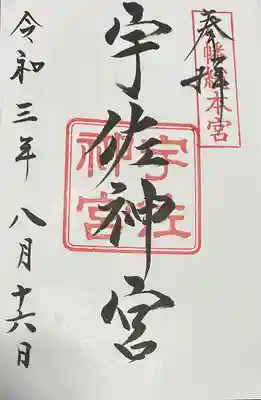 奉拝
八幡総本宮
宇佐神宮
宇佐神宮
令和三年 八月十六日